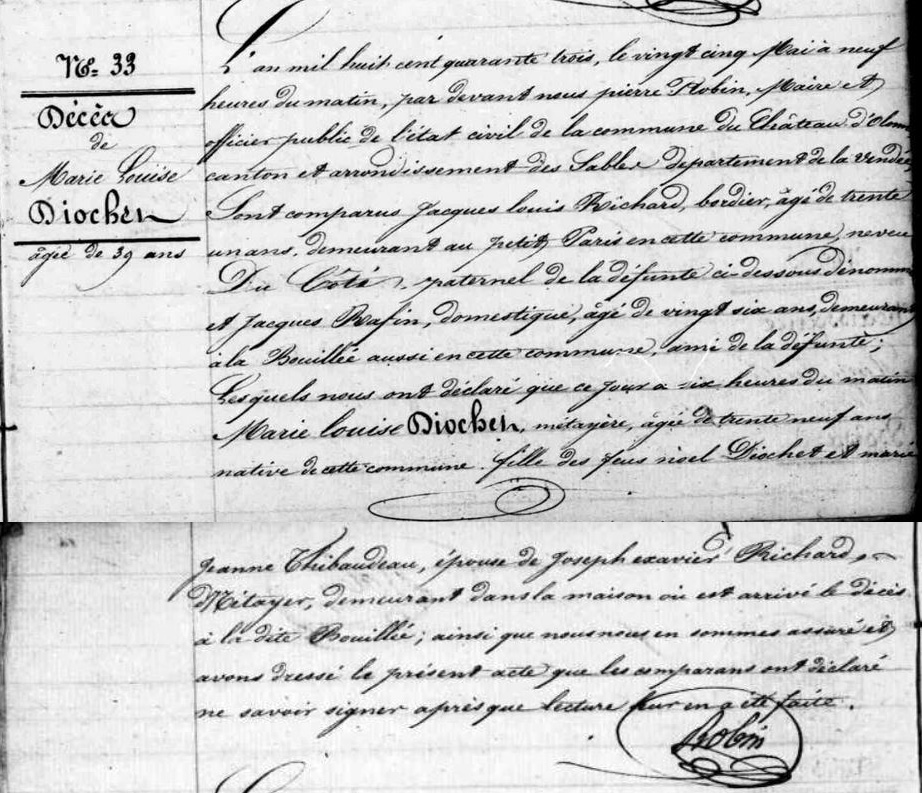 N.º 33
Décès
de
Marie Louise
Diochet
âgée de 39 ans
L'an mil huit cent quarante trois, le vingt cinq Mai à neuf
heures du matin, par devant nous pierre Robin, Maire et
officier public de l'état civil de la commune du Château d'Olonne
canton et arrondissement des Sables département de la Vendée,
Sont comparus Jacques louis Richard, bordier, âgé de trente
un ans, demeurant au petit Paris en cette commune, neveu
Du Côté paternel de la défunte ci-dessous dénommée
et Jacques Rafin, domestique, âgé de vingt six ans, demeurant
à la Bouillée aussi en cette commune, ami de la défunte ;
Lesquels nous ont déclaré que ce jour a six heures du matin
Marie Louise Diochet, métayère, âgée de trente neuf ans
native de cette commune. fille des feus noel Diochet et marie
Jeanne Thibaudeau, épouse de Joseph exavier Richard,
Métayer, demeurant dans la maison où est arrivé le décès
à la dite Bouillée ; ainsi que nous nous en sommes assuré et
avons dressé le présent acte que les comparans ont déclaré
ne savoir signer après que lecture leur en a été faite.
Robin